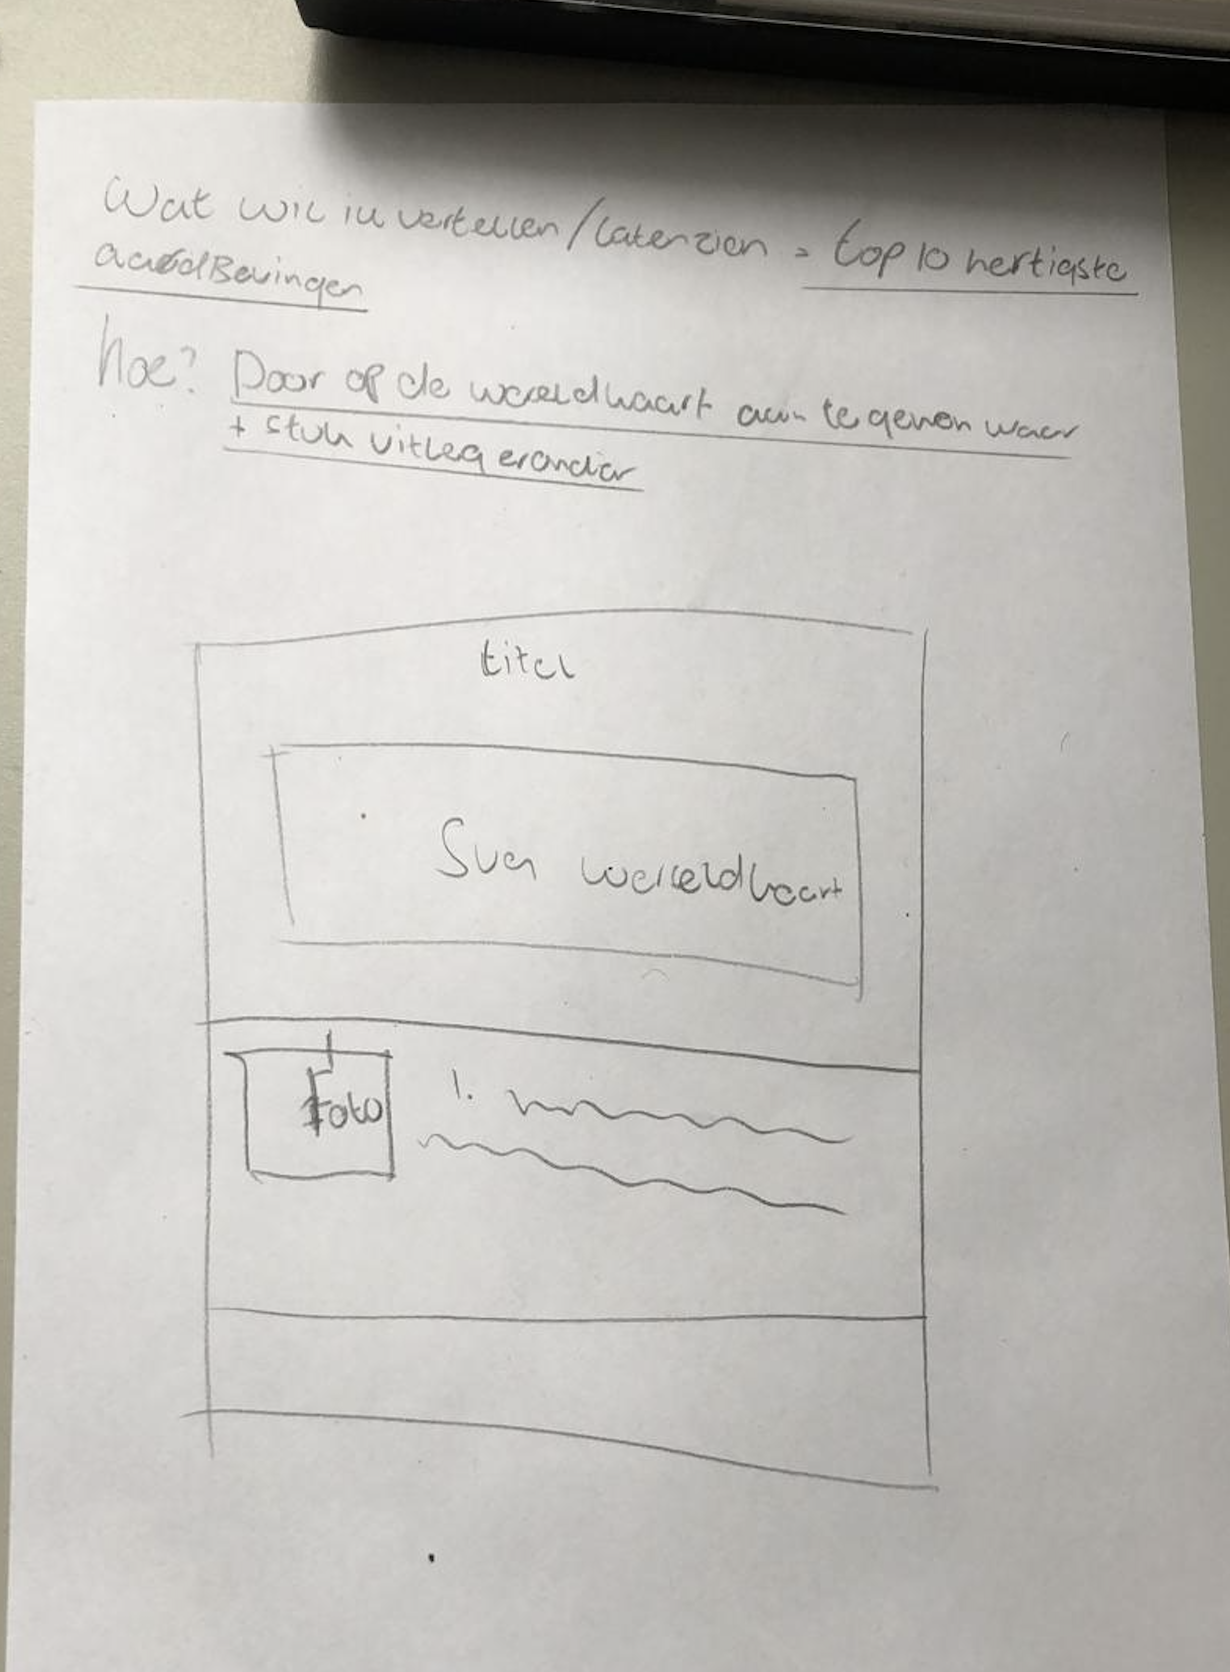 Wat wil ik vertellen / laten zien = top 10 heftigste
aardBevingen
hoe? Door op de wereldkaart aan te geven waar
+ stuk uitleg eronder
titel
SVG wereldkaart
Foto
1.